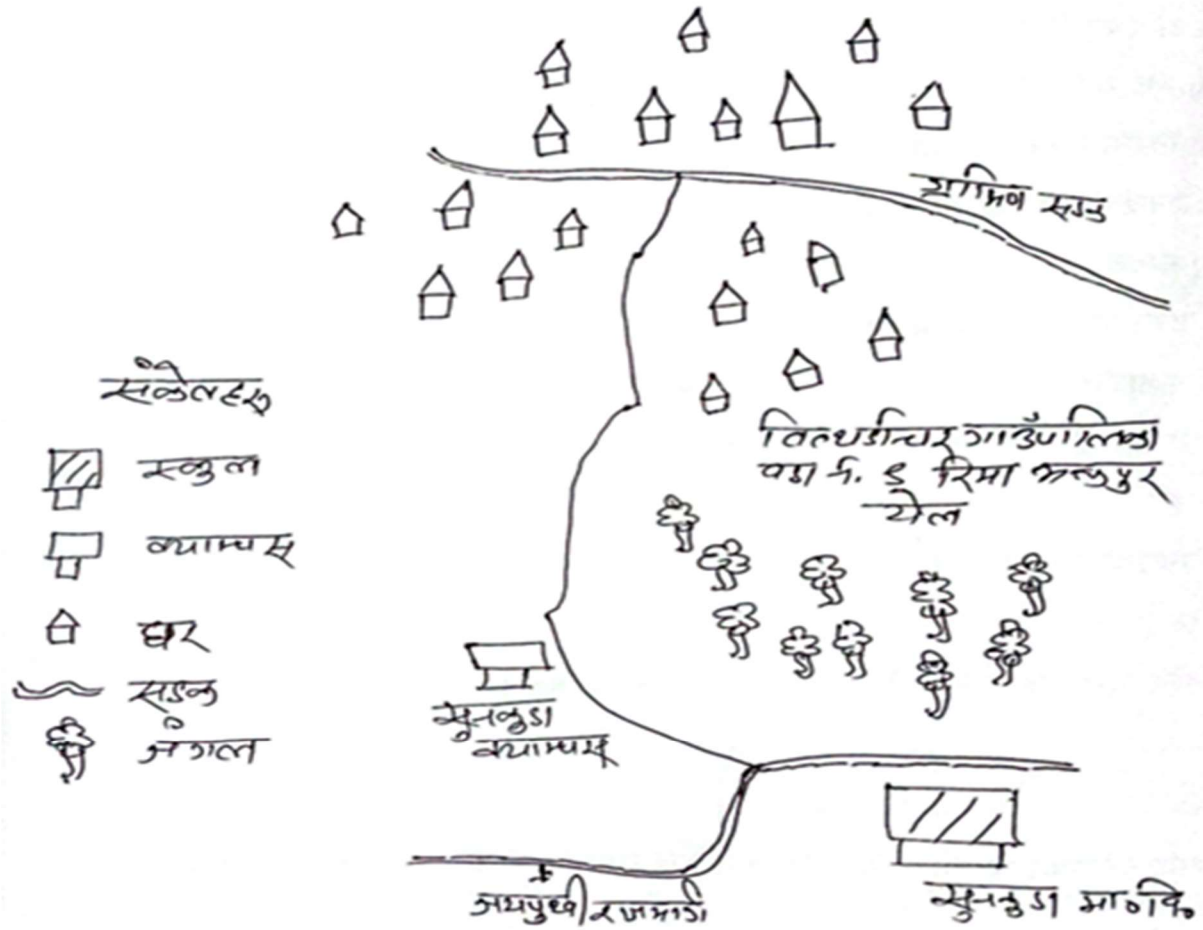 ग्रामिण सडक
संकेतहरु
स्कुल
क्याम्पस
घर
सडक
जंगल
वित्थडचिर गाउँपालिका
वडा नं. ६ रिमा
सुनकुडा
क्याम्पस
जयपृथ्वी राजमार्ग
सुनकुडा मा०वि०